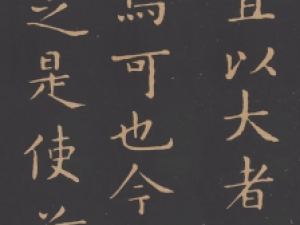 且以大者
焉可也今
之是使